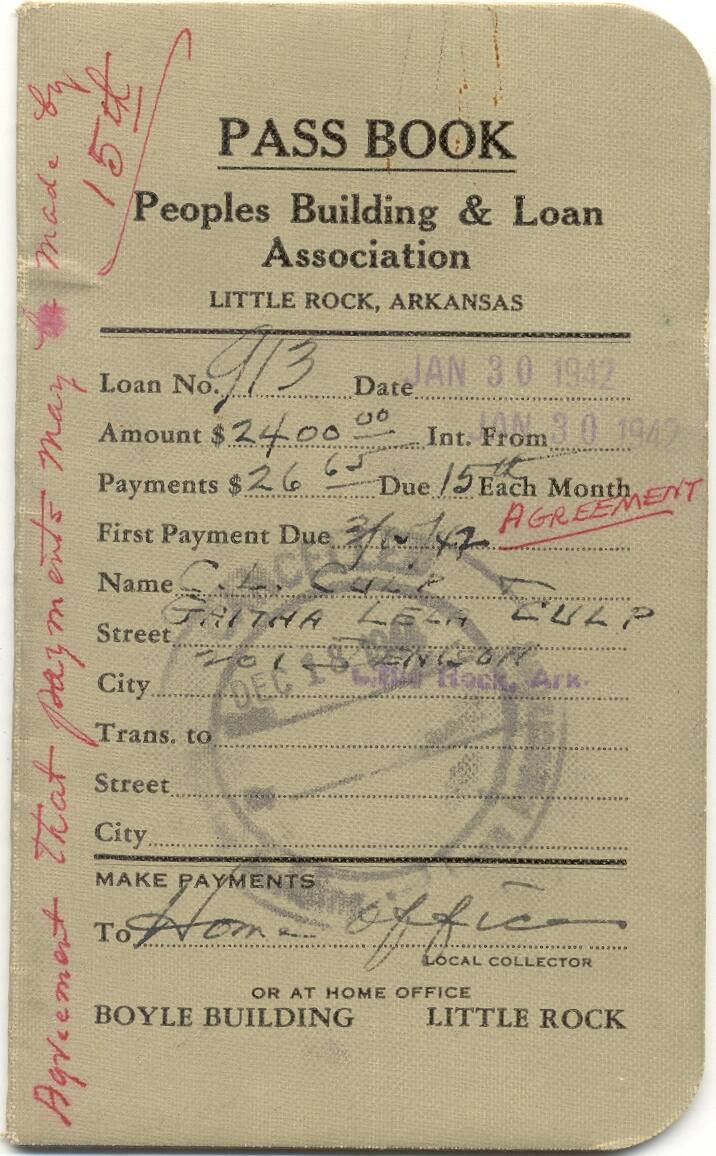 PASS BOOK
Peoples Building & Loan
Association
LITTLE ROCK, ARKANSAS
Loan No. 913 Date JAN 30 1942
Amount $ 2400 00 Int. From JAN 30 1942
Payments $ 26 65 Due 15th Each Month
AGREEMENT
First Payment Due 42
Name C. L. CULP
LELA CULP
Street
City Little Rock, Ark.
DEC 18
Trans. to
Street
City
MAKE PAYMENTS
To Home Office
LOCAL COLLECTOR
OR AT HOME OFFICE
BOYLE BUILDING LITTLE ROCK
Agreement that payments may be made by
15th